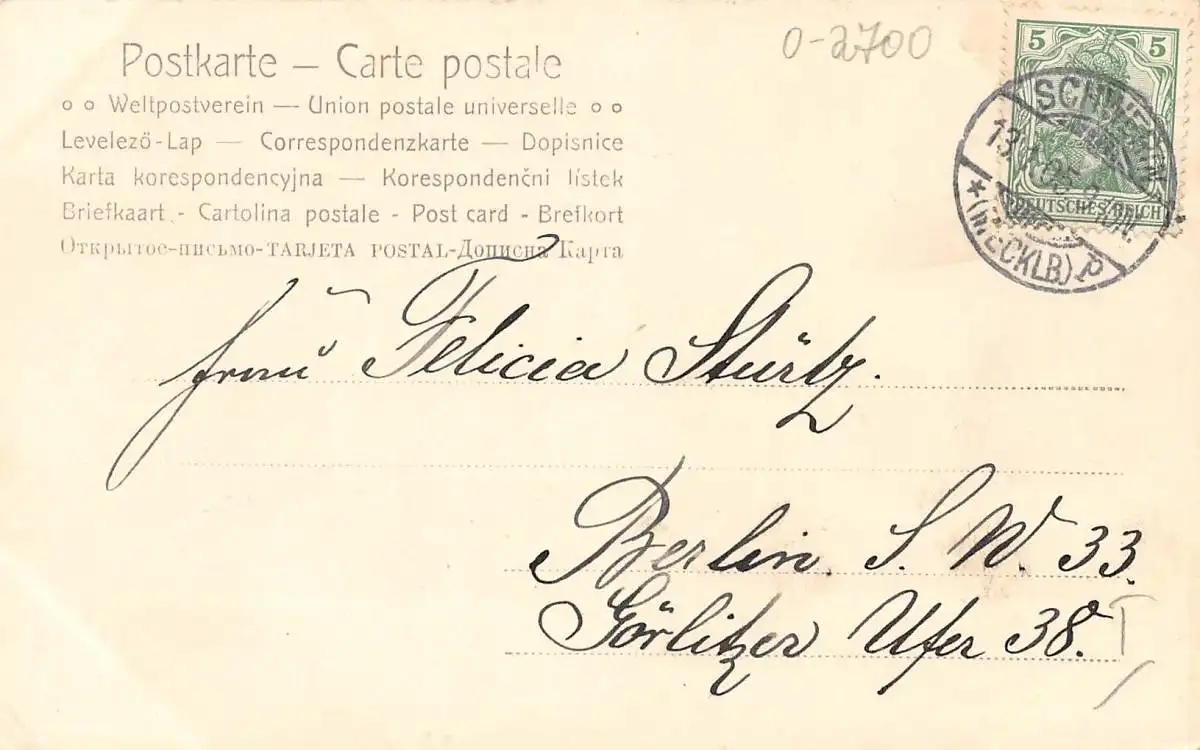 Postkarte — Carte postale
Weltpostverein — Union postale universelle
Levelező-Lap — Correspondenzkarte — Dopisnice
Karta korespondencyjna — Korespondenčni lístek
Briefkaart - Cartolina postale - Post card - Brefkort
Открытое-письмо-TARJETA POSTAL-Дописна Карта
0-2700
5 5
DEUTSCHES REICH
SCHWERIN
13.1.05
(MECKLB.)
Frau Felicia Stürtz.
Berlin. S. W. 33.
Görlitzer Ufer 38. I